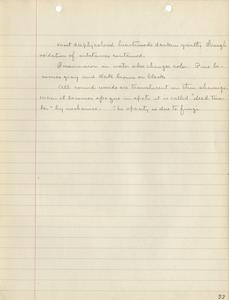 most deeply colored heartwoods darken greatly through
oxidation of substances contained.
Immersion in water also changes color. Pine be-
comes gray and oak brown or black.
All sound woods are translucent in thin shavings,
when it becomes opaque in spots it is called "dead timber
" by mechanics. The opacity is due to fungi.
37